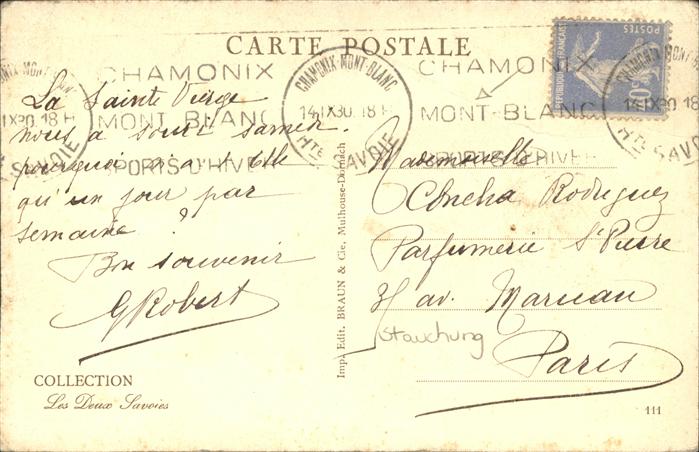 CARTE POSTALE
CHAMONIX
MONT-BLANC
SPORTS D'HIVER
CHAMONIX-MONT-BLANC
14 IX 30. 18 H
HTE SAVOIE
CHAMONIX
MONT-BLANC
SPORTS D'HIVER
14 IX 30 18 H
HTE SAVOIE
POSTES
REPUBLIQUE FRANÇAISE
La Sainte Vierge
nous a souri samedi.
pourquoi n'a-t-Elle
qu'un jour par
semaine ?
Bon souvenir
G Robert
Mademoiselle
Concha Rodriguez
Parfumerie St Pierre
31 av. 
Paris
Stauchung
Imp. Edit. BRAUN & Cie, Mulhouse-Dornach
COLLECTION
Les Deux Savoies
111